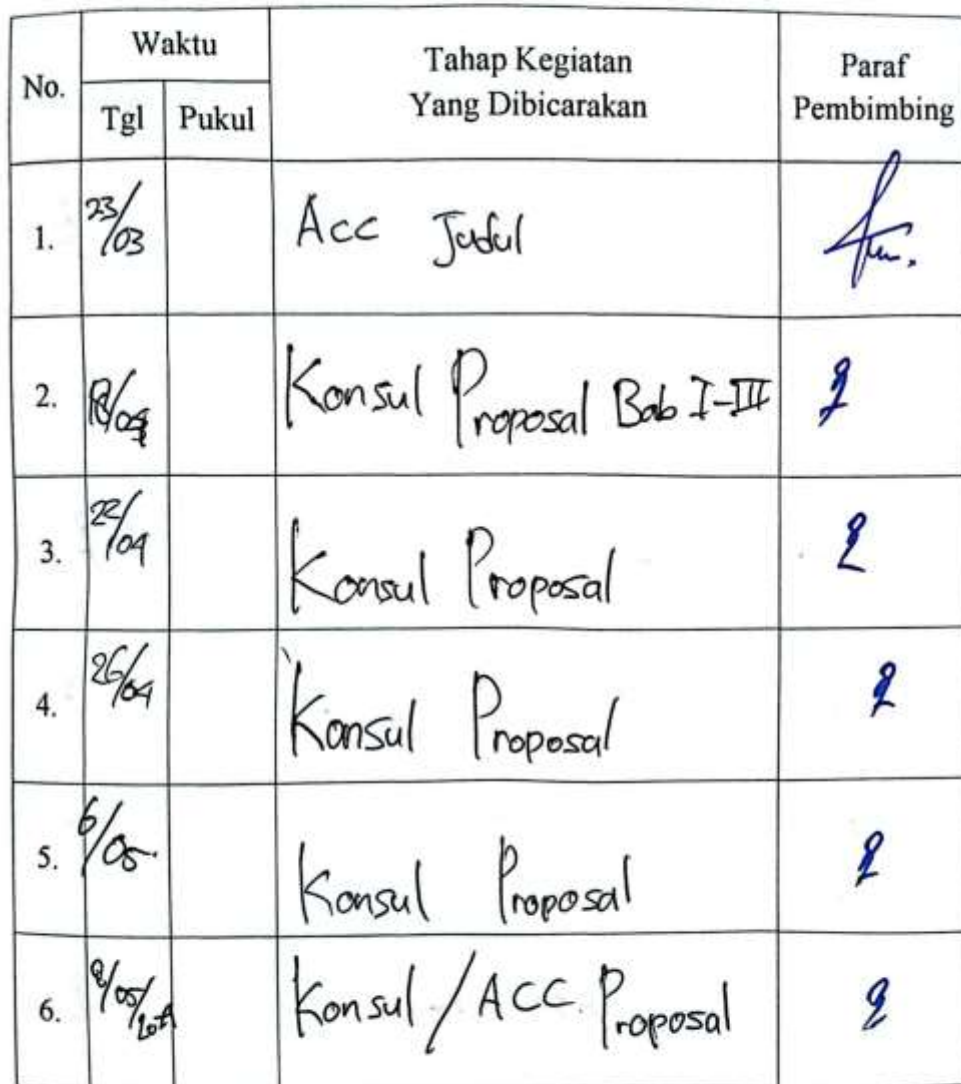 No.
Waktu
Tgl
Pukul
Tahap Kegiatan
Yang Dibicarakan
Paraf
Pembimbing
1.
23/03
Acc Judul
2.
Konsul Proposal Bab I-III
3.
22/04
Konsul Proposal
4.
26/04
Konsul Proposal
5.
6/05
Konsul Proposal
6.
Konsul / ACC Proposal